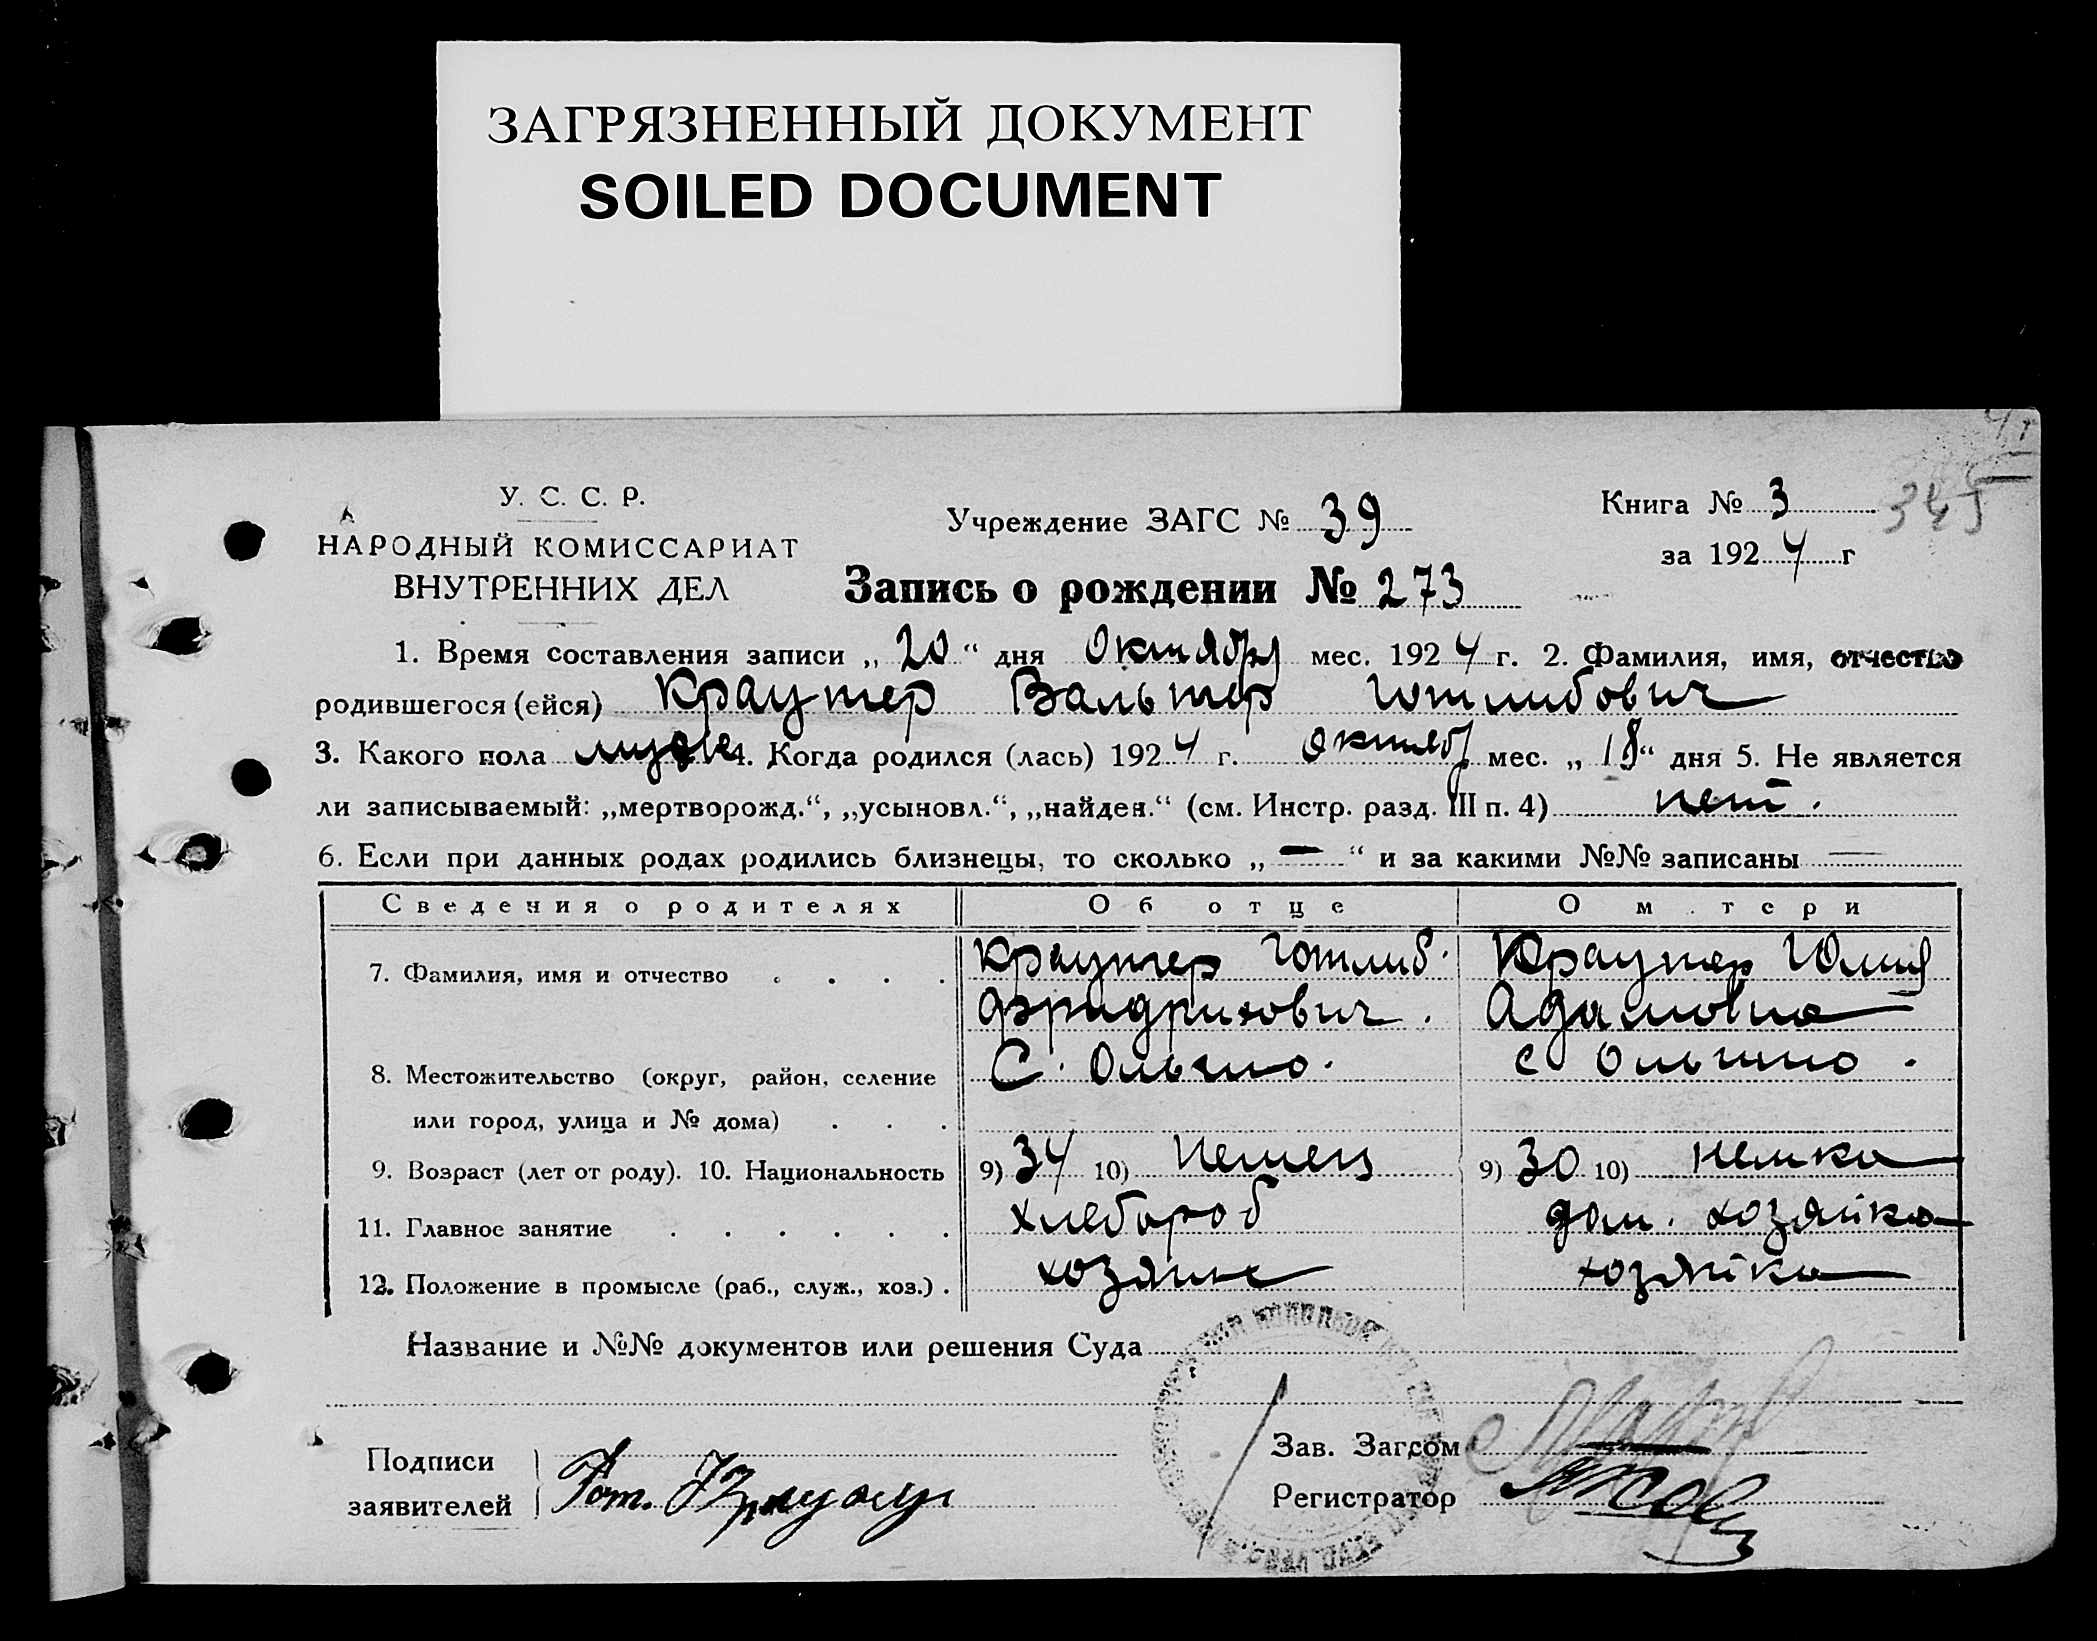 ЗАГРЯЗНЕННЫЙ ДОКУМЕНТ
SOILED DOCUMENT
У. С. С. Р.
НАРОДНЫЙ КОМИССАРИАТ
ВНУТРЕННИХ ДЕЛ
Учреждение ЗАГС № 39
Книга № 3
345
за 1924 г
Запись о рождении № 273
1. Время составления записи „20“ дня Октября мес. 1924 г. 2. Фамилия, имя, отчество
родившегося (ейся) Краутер Вальтер Готлибович
3. Какого пола мужс 4. Когда родился (лась) 1924 г. октябр мес. „18“ дня 5. Не является
ли записываемый: „мертворожд.“, „усыновл.“, „найден.“ (см. Инстр. разд. III п. 4) нет.
6. Если при данных родах родились близнецы, то сколько „—“ и за какими №№ записаны —
Сведения о родителях Об отце О м тери
7. Фамилия, имя и отчество . . . . Краутер Готлиб. Краутер Юлия
Фридрихович. Адамовна
8. Местожительство (округ, район, селение С. Ольгино. с Ольгино.
или город, улица и № дома) . . .
9. Возраст (лет от роду). 10. Национальность 9) 34 10) Немец 9) 30 10) немка
11. Главное занятие . . . . . . хлебороб дом. хозяйка
12. Положение в промысле (раб., служ., хоз.) . хозяин хозяйка
Название и №№ документов или решения Суда
Подписи
заявителей Гот.
Зав. Загсом
Регистратор